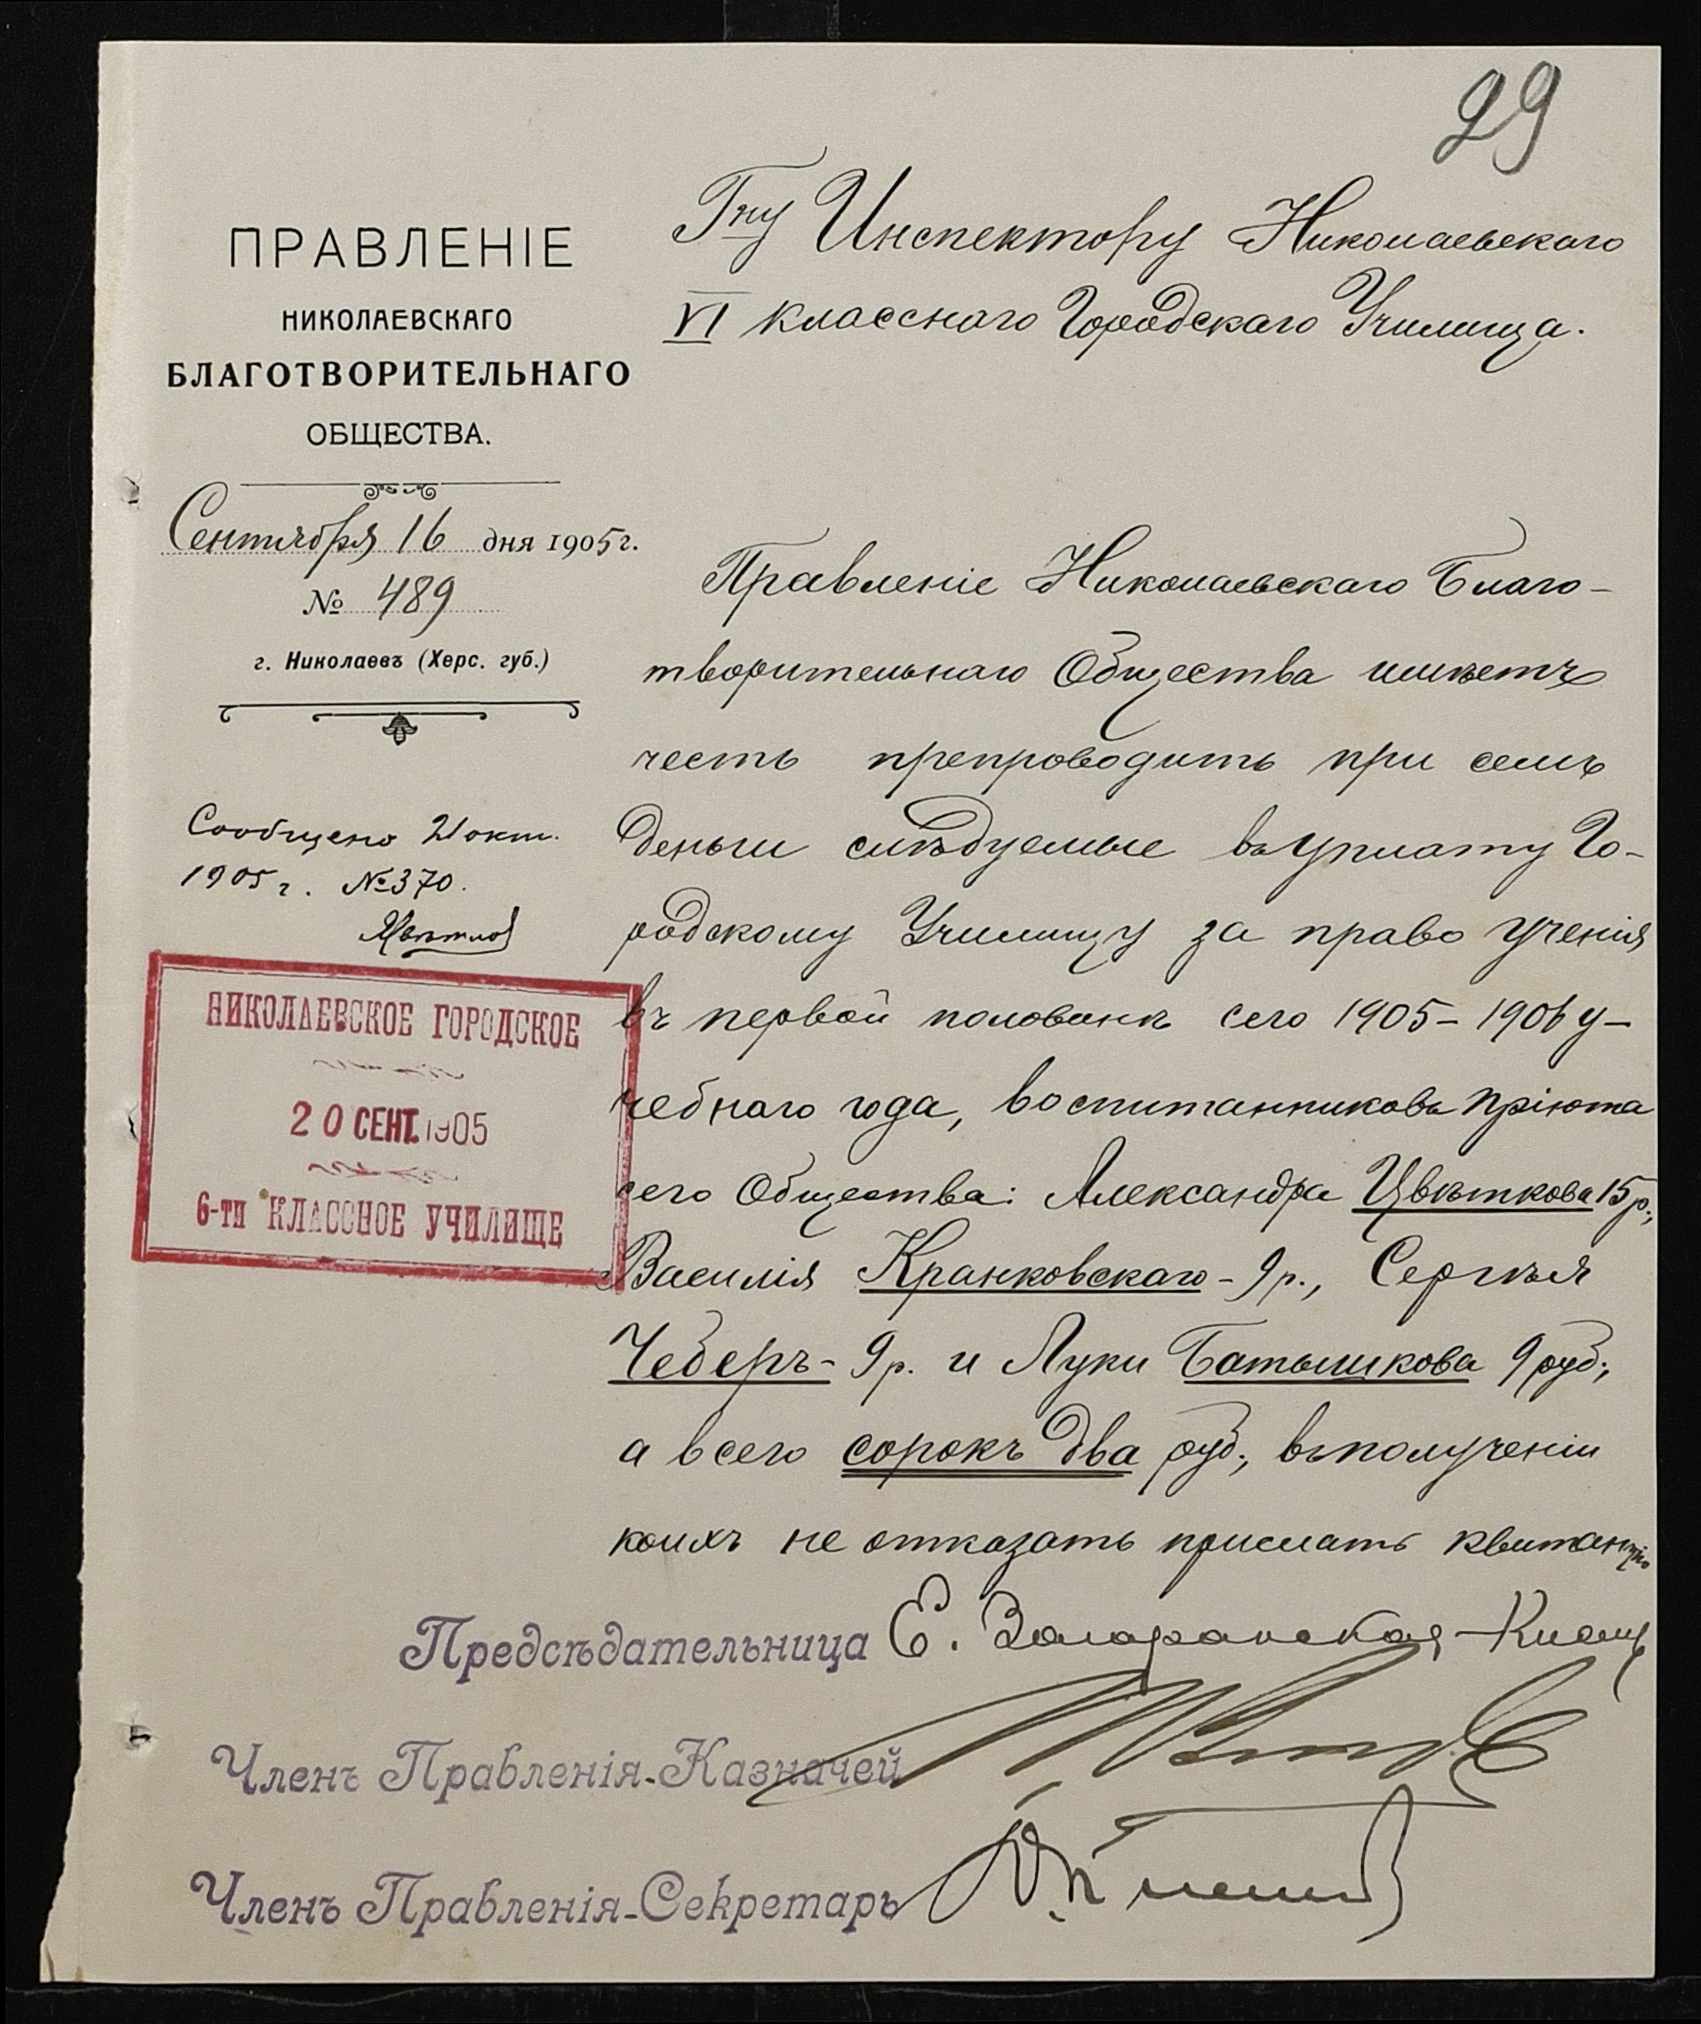 29
ПРАВЛЕНІЕ
НИКОЛАЕВСКАГО
БЛАГОТВОРИТЕЛЬНАГО
ОБЩЕСТВА.
Сентября 16 дня 1905 г.
№ 489
г. Николаевъ (Херс. губ.)
Сообщено 21 окт.
1905 г. № 370.
НИКОЛАЕВСКОЕ ГОРОДСКОЕ
20 СЕНТ. 1905
6-ти КЛАССНОЕ УЧИЛИЩЕ
Гну Инспектору Николаевскаго
VI класснаго Городскаго Училища.
Правленіе Николаевскаго Благо-
творительнаго Общества имѣетъ
честь препроводить при семъ
деньги слѣдуемые въ уплату Го-
родскому Училищу за право ученія
въ первой половинѣ сего 1905-1906 у-
чебнаго года, воспитанниковъ пріюта
сего Общества: Александра Цвѣткова 15 р.,
Василія Кранковскаго - 9 р., Сергѣя
Чеберъ - 9 р. и Луки Батышкова 9 руб.,
а всего сорокъ два руб., въ полученіи
коихъ не отказать прислать квитанцію
Предсѣдательница Е.
Членъ Правленія-Казначей
Членъ Правленія-Секретарь